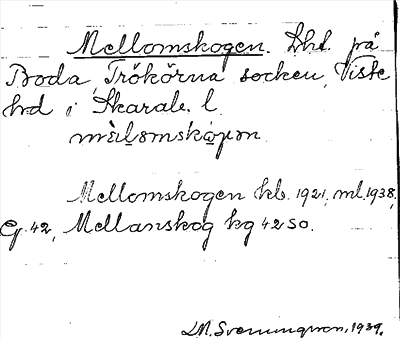 Mellomskogen. Lht. på
Boda, Trökörna socken, Viste
hd i Skarab. l.
mèl̥ômskóɡɷn.
Mellomskogen kb. 1921, ml. 1938,
Eg. 42, Mellanskog kg 42 SO.
LM. Svenungsson, 1939.